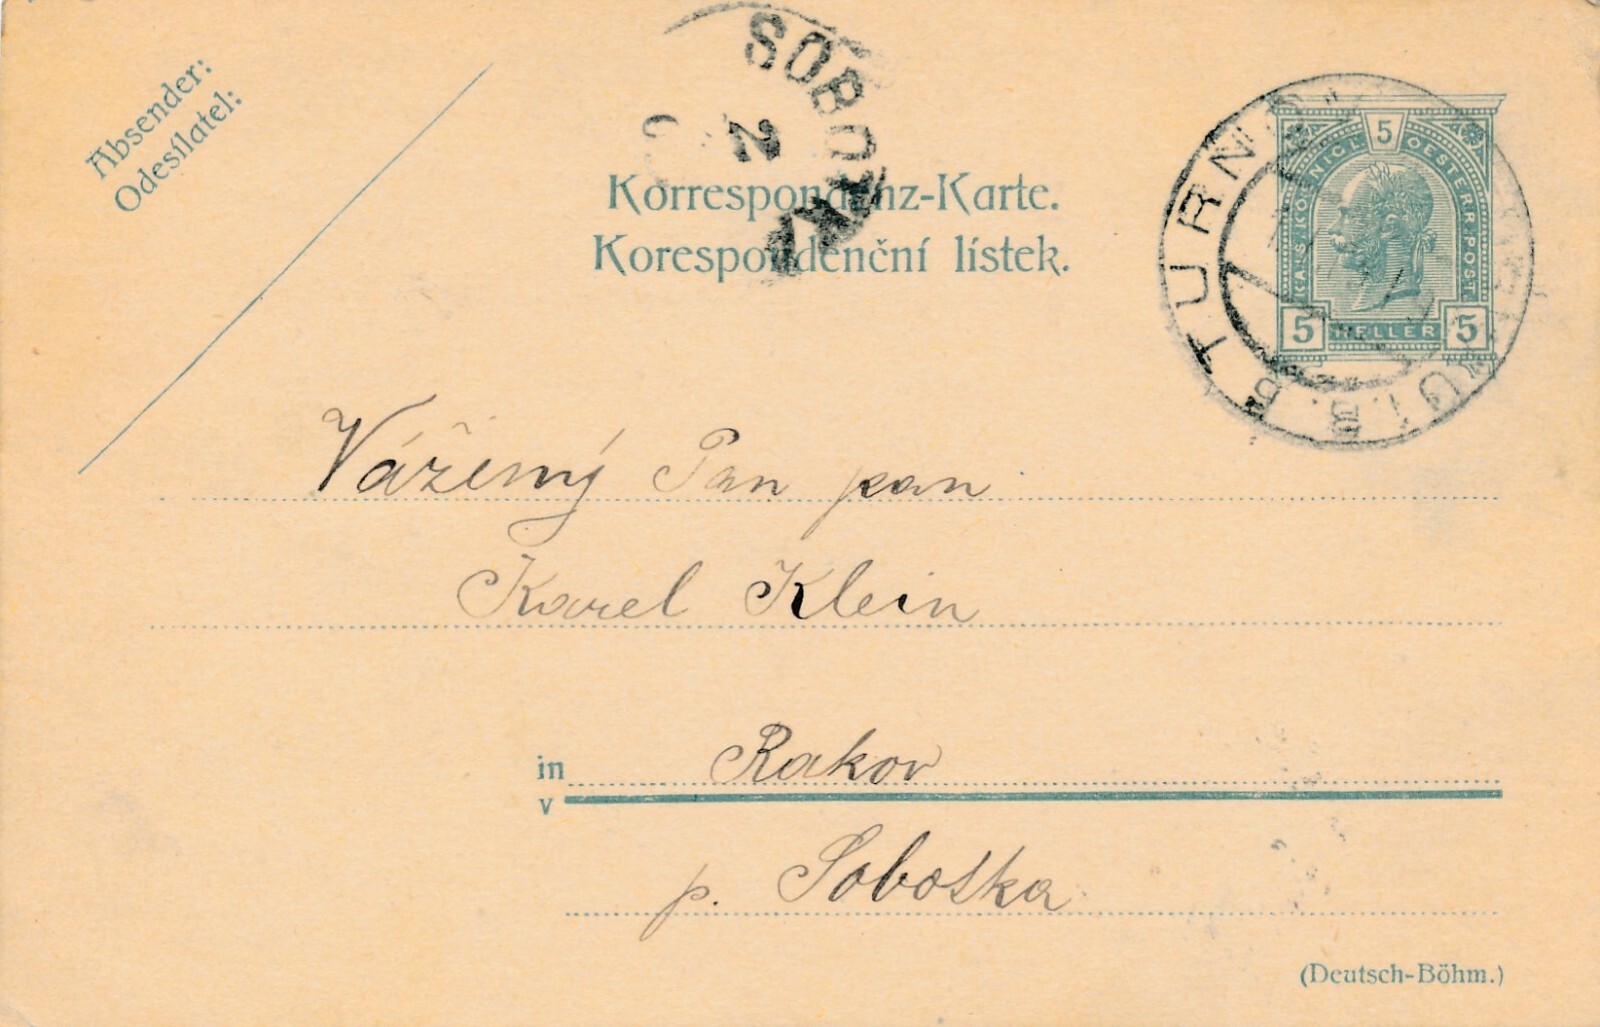 Absender:
Odesílatel:
SOBOTKA
2
Korrespondenz-Karte.
Korespondenční lístek.
TURNAU
5
KAIS. KÖNIGL. OESTERR. POST.
5 HELLER 5
Vážený Pan pan
Karel Klein
in Rakov
v
p. Sobotka
(Deutsch-Böhm.)